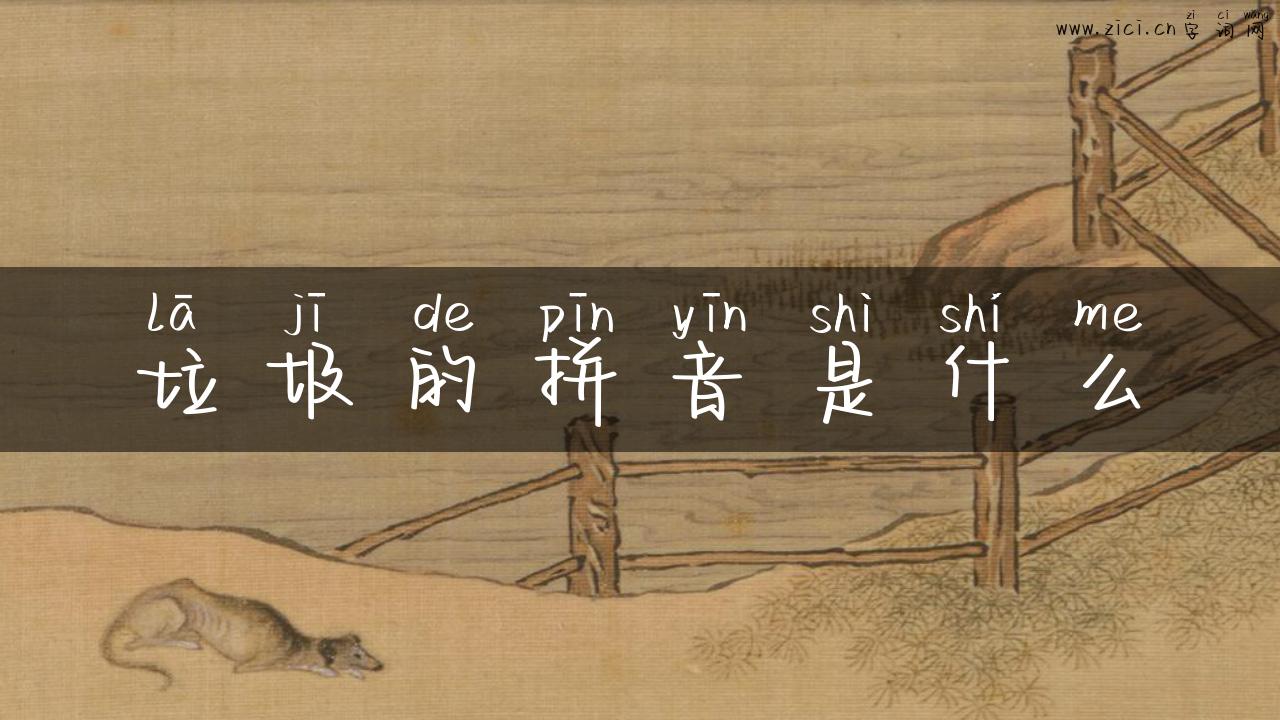 zì cí wǎng
www.zici.cn 字词网
lā jī de pīn yīn shì shí me
垃圾的拼音是什么